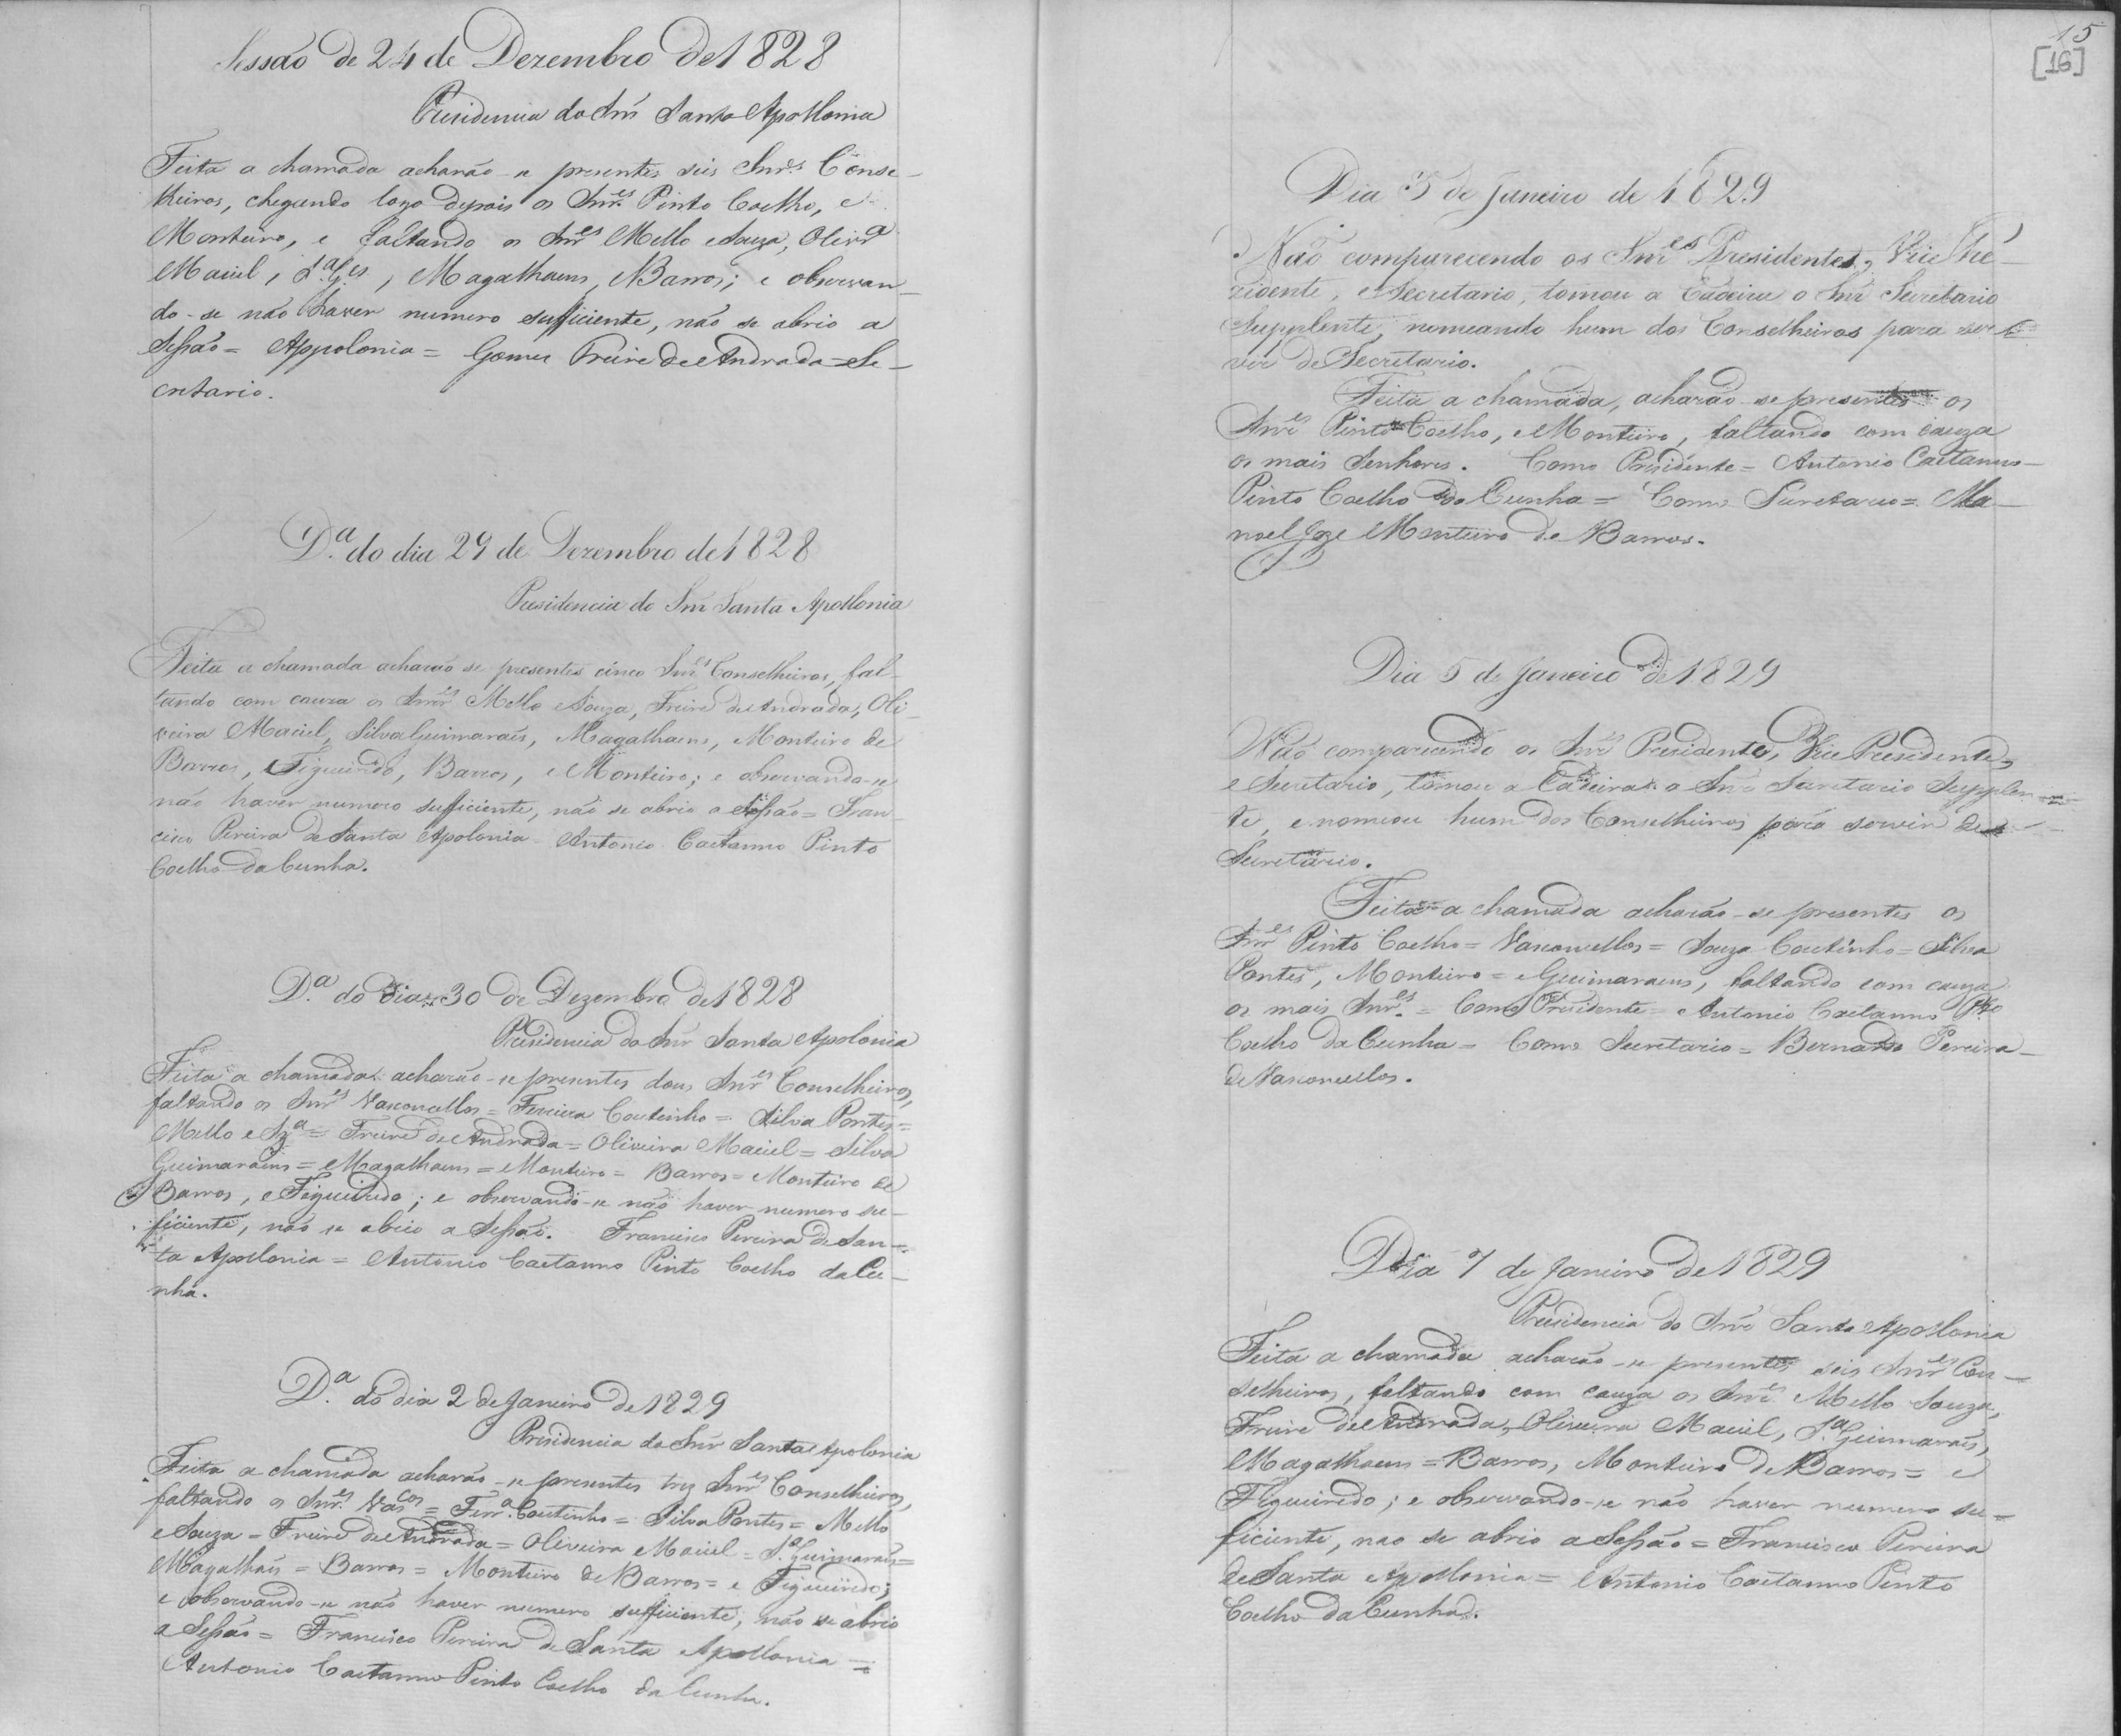 Sessão de 24 de Dezembro de 1828
Presidencia do Snr̃ Santa Apollonia
Feita a chamada acharão-se presentes seis Snr.es Conse-
lheiros, chegando logo depois os Snr.es Pinto Coelho, e
Monteiro, e faltando os Snr.es Mello e Souza, Olivr.a
Maciel, S.a G.es, Magalhaens, Barros; e observan-
do-se não haver numero sufficiente, não se abrio a
Sessão = Appolonia = Gomes Freire de Andrada = Se-
cretario.
D.a do dia 29 de Dezembro de 1828
Presidencia do Snr̃ Santa Apollonia
Feita a chamada acharão se presentes cinco Snr.es Conselheiros, fal-
tando com cauza os Snr.es Mello e Souza, Freire de Andrada, Oli-
veira Maciel, Silva Guimarães, Magalhaens, Monteiro de
Barros, e Figueiredo, Barros, e Monteiro; e observando-se
não haver numero sufficiente, não se abrio a Sessão = Fran-
cisco Pereira de Santa Apolonia - Antonio Caetanno Pinto
Coelho da Cunha.
D.a do dia 30 de Dezembro de 1828
Presidencia do Snr̃ Santa Apolonia
Feita a chamada acharão-se presentes dous Snr.es Conselheiros,
faltando os Snr.es Vasconcellos = Ferreira Coutinho = Silva Pontes =
Mello e Sz.a = Freire de Andrada = Oliveira Maciel = Silva
Guimaraens = Magalhaens = Monteiro = Barros = Monteiro de
Barros, e Figueiredo; e observando-se não haver numero su-
ficiente, não se abrio a Sessão. Francisco Pereira de San-
ta Apollonia = Antonio Caetanno Pinto Coelho da Cu-
nha.
D.a do dia 2 de Janeiro de 1829
Presidencia do Snr̃ Santa Apolonia
Feita a chamada acharão-se presentes trez Snr.es Conselheiros,
faltando os Snr.es Vas.cos = Ferr.a Coutinho = Silva Pontes = Mello
e Souza = Freire de Andrada = Oliveira Maciel = S.a Guimarães =
Magalhães = Barros = Monteiro de Barros = e Figueiredo;
e observando-se não haver numero sufficiente, não se abrio
a Sessão = Francisco Pereira de Santa Apollonia =
Antonio Caetanno Pinto Coelho da Cunha.
15
[16]
Dia 3 de Janeiro de 1829
Não comparecendo os Snr.es Presidente, Vice Pre-
zidente, e Secretario, tomou a Cadeira o Snr̃ Secretario
Supplente, nomeando hum dos Conselheiros para ser-
vir de Secretario.
Feita a chamada, acharão-se presentes os
Snr.es Pinto Coelho, e Monteiro, faltando com cauza
os mais Senhores. Como Presidente = Antonio Caetanno
Pinto Coelho da Cunha = Como Secretario = Ma-
noel Joze Monteiro de Barros.
Dia 5 de Janeiro de 1829
Não comparecendo os Snr.es Presidente, Vice Presidente,
e Secretario, tomou a Cadeira o Snr̃ Secretario Supplen-
te, e nomeou hum dos Conselheiros para servir de
Secretario.
Feita a chamada acharão-se presentes os
Snr.es Pinto Coelho = Vasconcellos = Souza Coutinho = Silva
Pontes, Monteiro = e Guimaraens, faltando com cauza
os mais Snr.es = Como Presidente = Antonio Caetanno P.to
Coelho da Cunha = Como Secretario = Bernardo Pereira
de Vasconcellos.
Dia 7 de Janeiro de 1829
Presidencia do Snr̃ Santa Apollonia
Feita a chamada acharão-se presentes seis Snr.es Con-
selheiros, faltando com cauza os Snr.es Mello Souza,
Freire de Andrada, Oliveira Maciel, S.a Guimarães,
Magalhaens = Barros, Monteiro de Barros = e
Figueiredo; e observando-se não haver numero su=
ficiente, não se abrio a Sessão = Francisco Pereira
de Santa Apollonia = Antonio Caetanno Pinto
Coelho da Cunha.